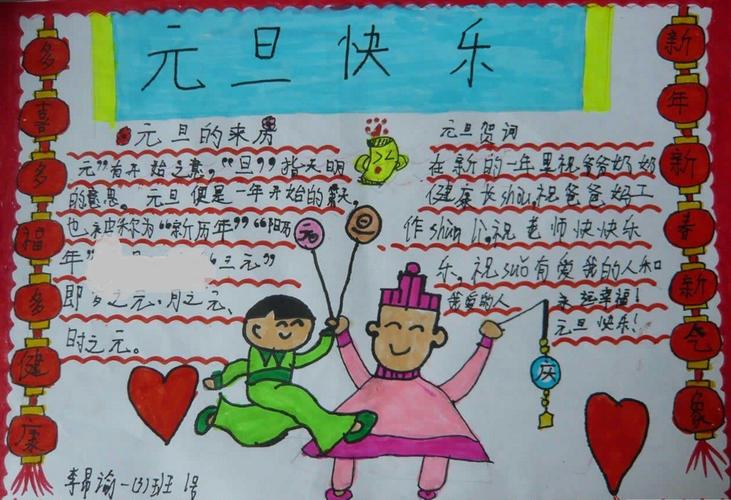 元旦快乐
多喜多福多健康
新年新春新气象
元旦的来历
元”有开始之意，“旦”指天明
的意思。元旦便是一年开始的天，
也被称为“新历年”“阳历
年” “三元”
即岁之元、月之元、
时之元。
元旦贺词
在新的一年里祝爷爷奶奶
健康长shòu，祝爸爸妈工
作shùn lì，祝老师快快乐
乐，祝suǒ有爱我的人和
我爱的人 永远幸福！
元旦快乐！
元
旦
庆
李昂谕一（3）班 1号